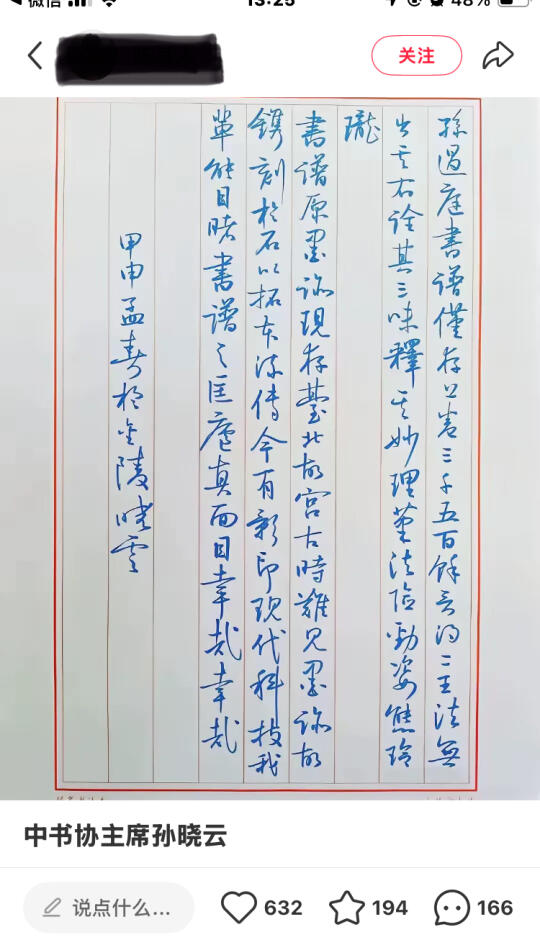 微信
13:25
48%
关注
孫過庭書譜僅存上卷三千五百餘言得二王法無
出其右詮其三味釋其妙理筆法險勁姿態玲
瓏
書譜原墨跡現存臺北故宮古時難見墨跡故
鐫刻於石以拓本流傳今有影印現代科技我
輩能目睹書譜之匡廬真面目幸哉幸哉
甲申孟春於金陵曉雲
中书协主席孙晓云
说点什么...
632
194
166